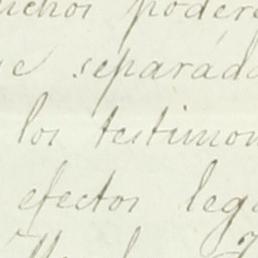 uchos podere
se separada
los testimon
efectos lega